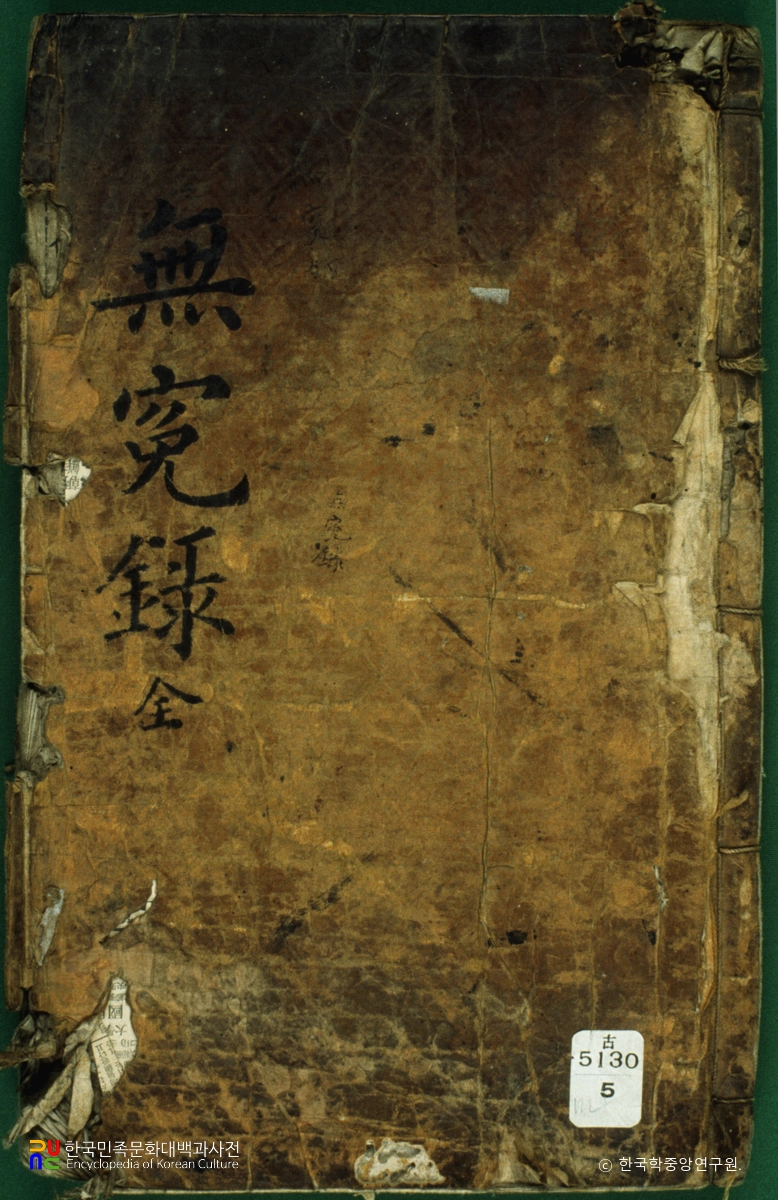 無
寃
錄
全
寃
錄
國
大
古
5130
5
한국민족문화대백과사전
Encyclopedia of Korean Culture
© 한국학중앙연구원